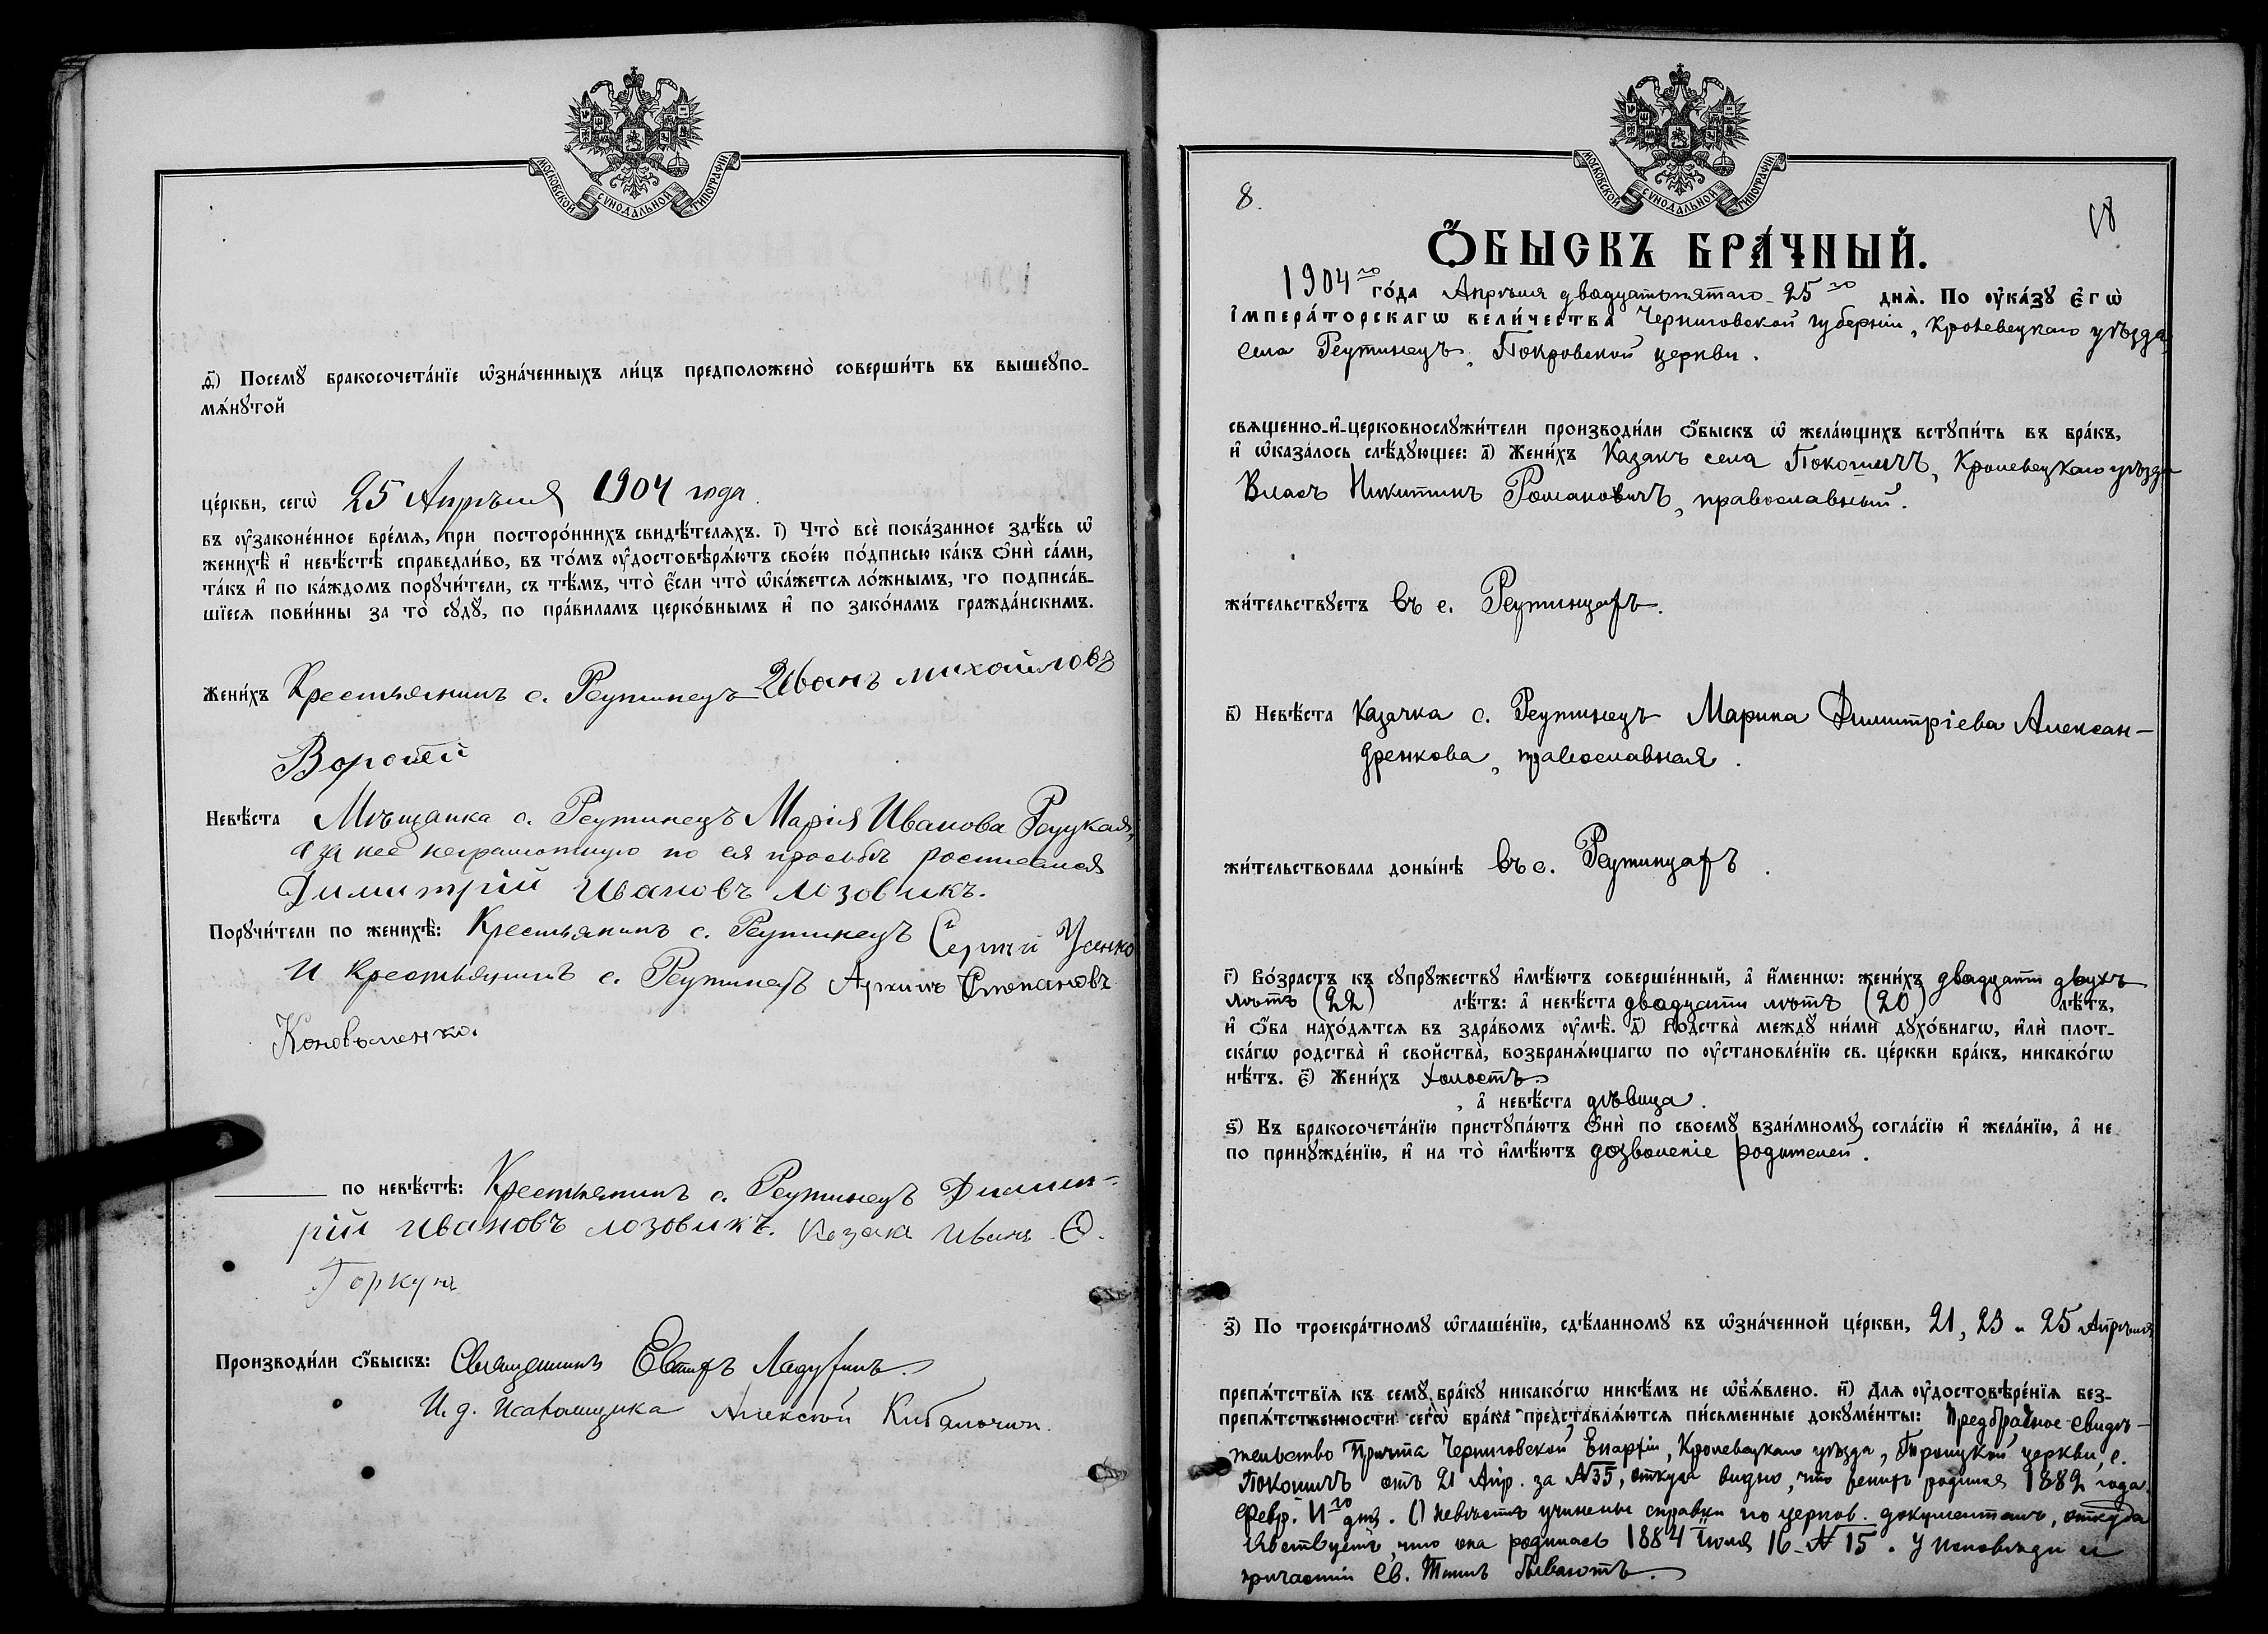 МОСКОВСКОЙ СѴНОДАЛЬНОЙ ТИПОГРАФІИ
ѳ҃) Посемꙋ бракосочета́нїе ѡ҆зна́ченныхъ ли́цъ предположено̀ соверши́ть въ вышеꙋпо-
мѧ́нꙋтой
це́ркви, сегѡ̀ 25 Апрѣля 1904 года.
въ ᲂу҆законе́нное вре́мѧ, при посторо́ннихъ свидѣ́телѧхъ. і҃) Что̀ всѐ пока́занное здѣ́сь ѡ҆
женихѣ̀ и҆ невѣ́стѣ справедли́во, въ то́мъ ᲂу҆достовѣрѧ́ютъ свое́ю по́дписью ка́къ ѻ҆нѝ са́ми,
та́къ и҆ по ка́ждомъ порꙋчи́тели, съ тѣ́мъ, что̀ є҆́сли что̀ ѡ҆ка́жетсѧ ло́жнымъ, то подписа́в-
шїесѧ пови́нны за то̀ сꙋдꙋ̀, по пра́виламъ церко́внымъ и҆ по зако́намъ гражда́нскимъ.
Жени́хъ Крестьянинъ с. Реутинецъ Иванъ михайловъ
Воропей
Невѣ́ста Мѣщанка с. Реутинецъ Марія Иванова Реуцкая,
а за нее неграмотную по ея просьбѣ росписался
Димитрій Ивановъ Лозовикъ.
Порꙋчи́тели по женихѣ̀: Крестьянинъ с. Реутинецъ Сергій Усенко
И крестьянинъ с. Реутинецъ Степановъ
Коноваленко.
по невѣ́стѣ: Крестьянинъ с. Реутинецъ Димит-
рій Ивановъ Лозовикъ. Козакъ Иванъ Ѳ.
Горкунъ
Производи́ли ѻ҆́быскъ: Священникъ Евтихъ Ладухинъ.
И. д. псаломщика Алексѣй Кибальчич.
МОСКОВСКОЙ СѴНОДАЛЬНОЙ ТИПОГРАФІИ
8. 18
Ѻ҆́БЫСКЪ БРА́ЧНЫЙ.
1904го го́да Апрѣля двадцатьпятаго 25го днѧ̀. По ᲂу҆ка́зꙋ є҆гѡ̀
і҆мпера́торскагѡ вели́чества Черниговской губерніи, Кролевецкаго уѣзда,
села Реутинецъ, Покровской церкви.
свѧщенно-и҆-церковнослꙋжи́тели производи́ли ѻ҆́быскъ ѡ҆ жела́ющихъ встꙋпи́ть въ бра́къ,
и҆ ѡ҆каза́лось слѣ́дꙋющее: а҃) Жени́хъ Казакъ села Покошичъ, Кролевецкаго уѣзда
Власъ Никитинъ Романовичъ, православный.
жи́тельствꙋетъ въ с. Реутинцахъ.
в҃) Невѣ́ста Казачка с. Реутинецъ Марина Димитріева Алексан-
дренкова, православная.
жи́тельствовала доны́нѣ въ с. Реутинцахъ.
г҃) Во́зрастъ къ сꙋпрꙋ́жествꙋ и҆мѣ́ютъ соверше́нный, а҆ и҆́меннѡ: жени́хъ двадцати двухъ
лѣтъ (22) лѣ́тъ: а҆ невѣ́ста двадцати лѣтъ (20) лѣ́тъ,
и҆ ѻ҆́ба нахо́дѧтсѧ въ здра́вомъ ᲂу҆мѣ̀. д҃) Родства̀ междꙋ ни́ми дꙋхо́внагѡ, и҆лѝ плот-
ска́гѡ родства̀ и҆ свойства̀, возбранѧ́ющагѡ по ᲂу҆становле́нїю св. це́ркви бра́къ, никако́гѡ
нѣ́тъ. є҃) Жени́хъ холостъ
, а҆ невѣ́ста дѣвица.
ѕ҃) Въ бракосочета́нїю пристꙋпа́ютъ ѻ҆нѝ по своемꙋ̀ взаи́мномꙋ согла́сїю и҆ жела́нїю, а҆ не
по принꙋжде́нїю, и҆ на то̀ и҆мѣ́ютъ дозволеніе родителей.
з҃) По троекра́тномꙋ ѡ҆глаше́нїю, сдѣ́ланномꙋ въ ѡ҆зна́ченной це́ркви, 21, 23 и 25 Апрѣля
препѧ́тствїѧ къ семꙋ̀ бра́кꙋ никако́гѡ никѣ́мъ не ѡ҆б̾ѧ́влено. и҃) Длѧ ᲂу҆достовѣре́нїѧ без-
препѧ́тственности сегѡ̀ бра́ка представлѧ́ютсѧ пи́сьменные докꙋме́нты: Предбрачное свидѣ-
тельство Причта Черниговской Епархіи, Кролевецкаго уѣзда, Троицкой церкви, с.
Покошичъ отъ 21 Апр. за №35, откуда видно, что женихъ родился 1882 года
Февр. 11го дня. О невѣстѣ учинены справки по церков. документамъ, откуда
явствуетъ, что она родилась 1884 Іюля 16 № 15. У исповѣди и
причастіи Св. Таинъ бываютъ.